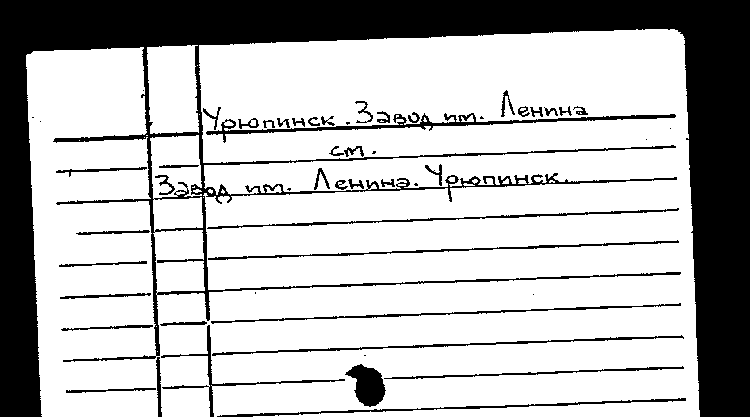 Урюпинск. Завод им. Ленина
см.
Завод им. Ленина. Урюпинск.